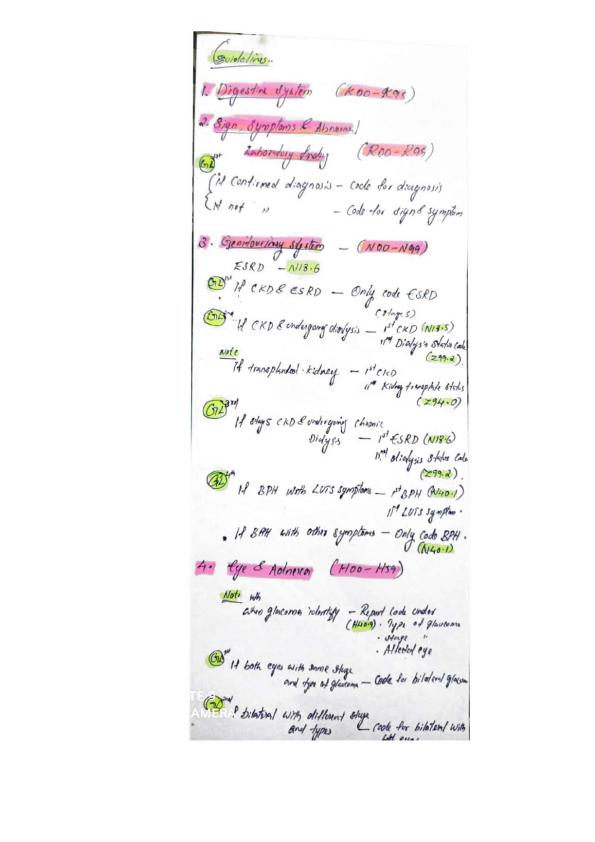 Guidelines..
1. Digestive System (K00-K95)
2. Sign, Symptoms & Abnormal
Laboratory finding (R00-R99)
GL 1st
if Confirmed diagnosis - Code for diagnosis
if not " - Code for sign & symptom
3. Genitourinary System - (N00-N99)
ESRD - N18.6
GL 1st If CKD & ESRD - Only code ESRD
(Stage 5)
GL 2nd If CKD & undergoing dialysis - 1st CKD (N18.5)
IInd Dialysis Status Code
(Z99.2)
Note
If transplanted kidney - 1st CKD
IInd Kidney transplate Status
(Z94.0)
GL 3rd
If stage 5 CKD & undergoing chronic
Dialysis - 1st ESRD (N18.6)
IInd dialysis status code
(Z99.2)
GL 4th
If BPH with LUTS symptoms - 1st BPH (N40.1)
IInd LUTS symptom.
. If BPH with other symptoms - Only code BPH.
(N40.1)
4. Eye & Adnexa (H00-H59)
Note
when glaucoma identify - Report code under
(H40.9) . Type of glaucoma
. stage "
. Affected eye
GL 1st If both eyes with same stage
and type of glaucoma - Code for bilateral glaucoma
GL 2nd
If bilateral with different stage
and types - code for bilateral with